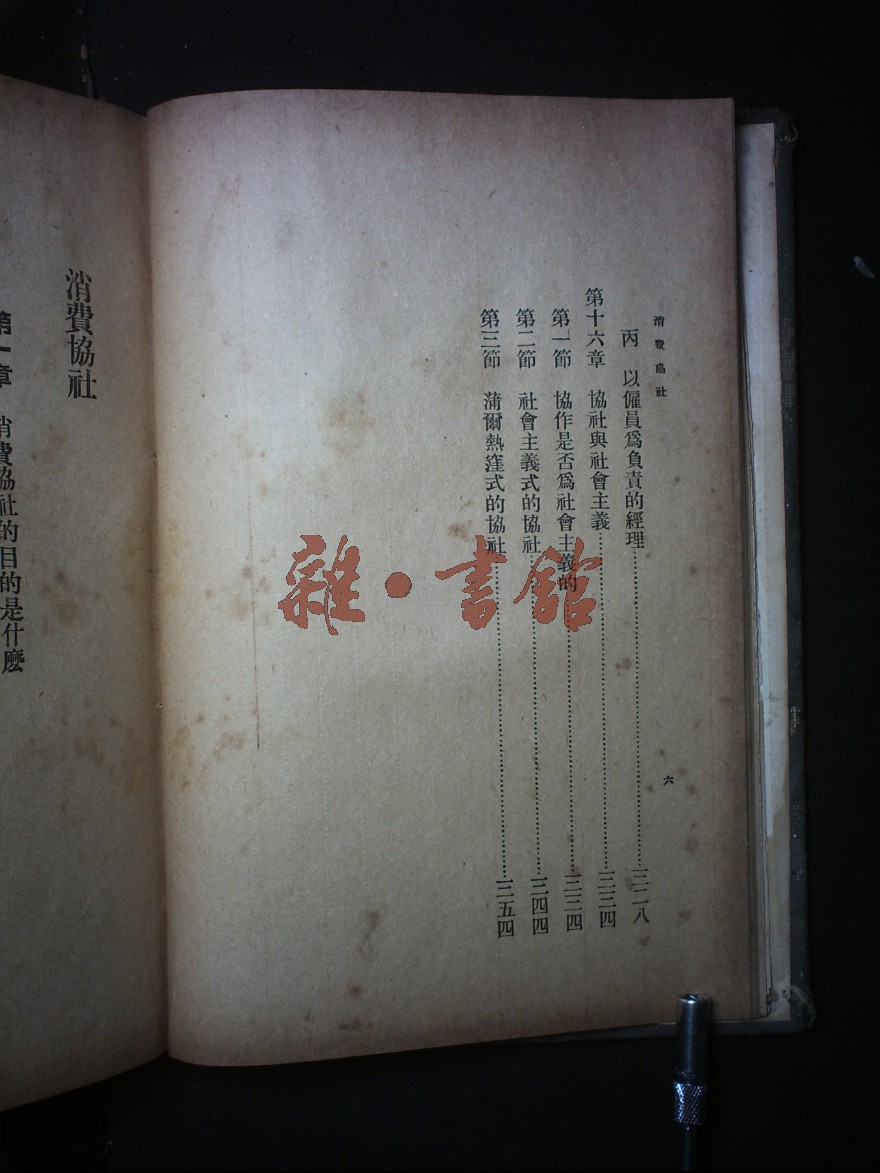 消費協社
六
丙 以僱員爲負責的經理…………三二八
第十六章 協社與社會主義…………三三四
第一節 協作是否爲社會主義的…………三三四
第二節 社會主義式的協社…………三四四
第三節 蒲爾熱窪式的協社…………三五四
雜·書館
消費協社
第一章 消費協社的目的是什麽